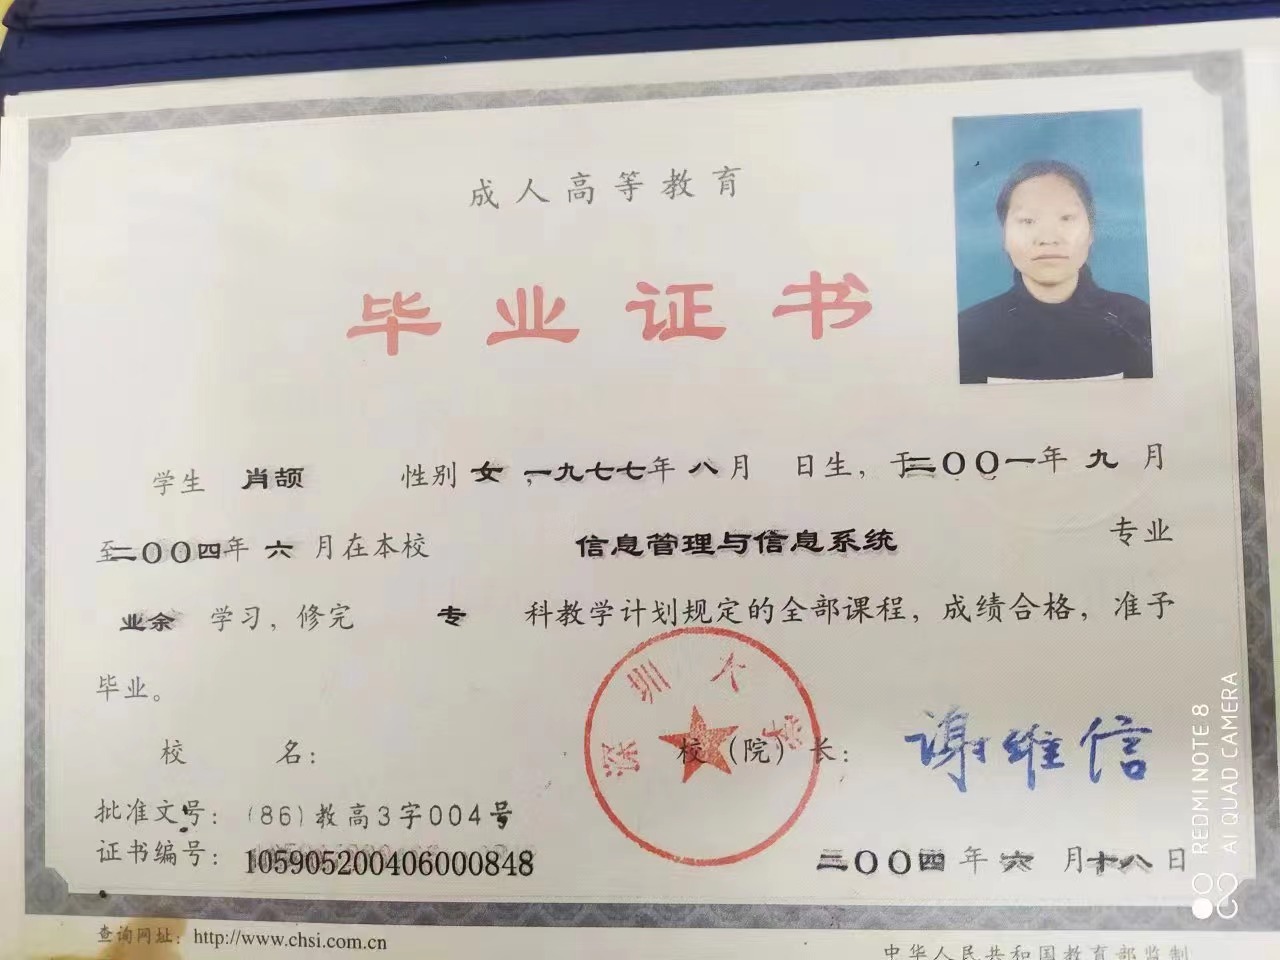 成人高等教育
毕业证书
学生 肖颉 性别 女，一九七七年 八 月 日生，于二〇〇一年 九 月
至二〇〇四年 六 月在本校 信息管理与信息系统 专业
业余 学习，修完 专 科教学计划规定的全部课程，成绩合格，准予
毕业。
深圳大学
校 名： 校（院）长： 谢维信
批准文号：(86)教高3字004号
证书编号：105905200406000848
二〇〇四 年 六 月十八日
查询网址：http://www.chsi.com.cn
中华人民共和国教育部监制
REDMI NOTE 8
AI QUAD CAMERA